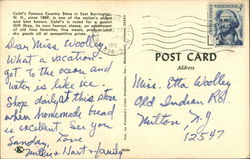 Calef's Famous Country Store in East Barrington,
N. H., since 1869, is one of the nation's oldest
and best known. Calef's is noted for a quaint
Gift Shop, its own famous cheese, an assortment
of old time favorites, fine meats, produce and
dry goods all at competitive prices.
Dear Miss Woolley,
What a vacation -
got to the ocean and
water is like ice.
Shop daily at this store
when homemade bread
is excellent. See you
Sunday, Love
Hart & family
POST CARD
Address
Miss. Etta Woolley
Old Indian Rd.
Milton, N.Y.
12547